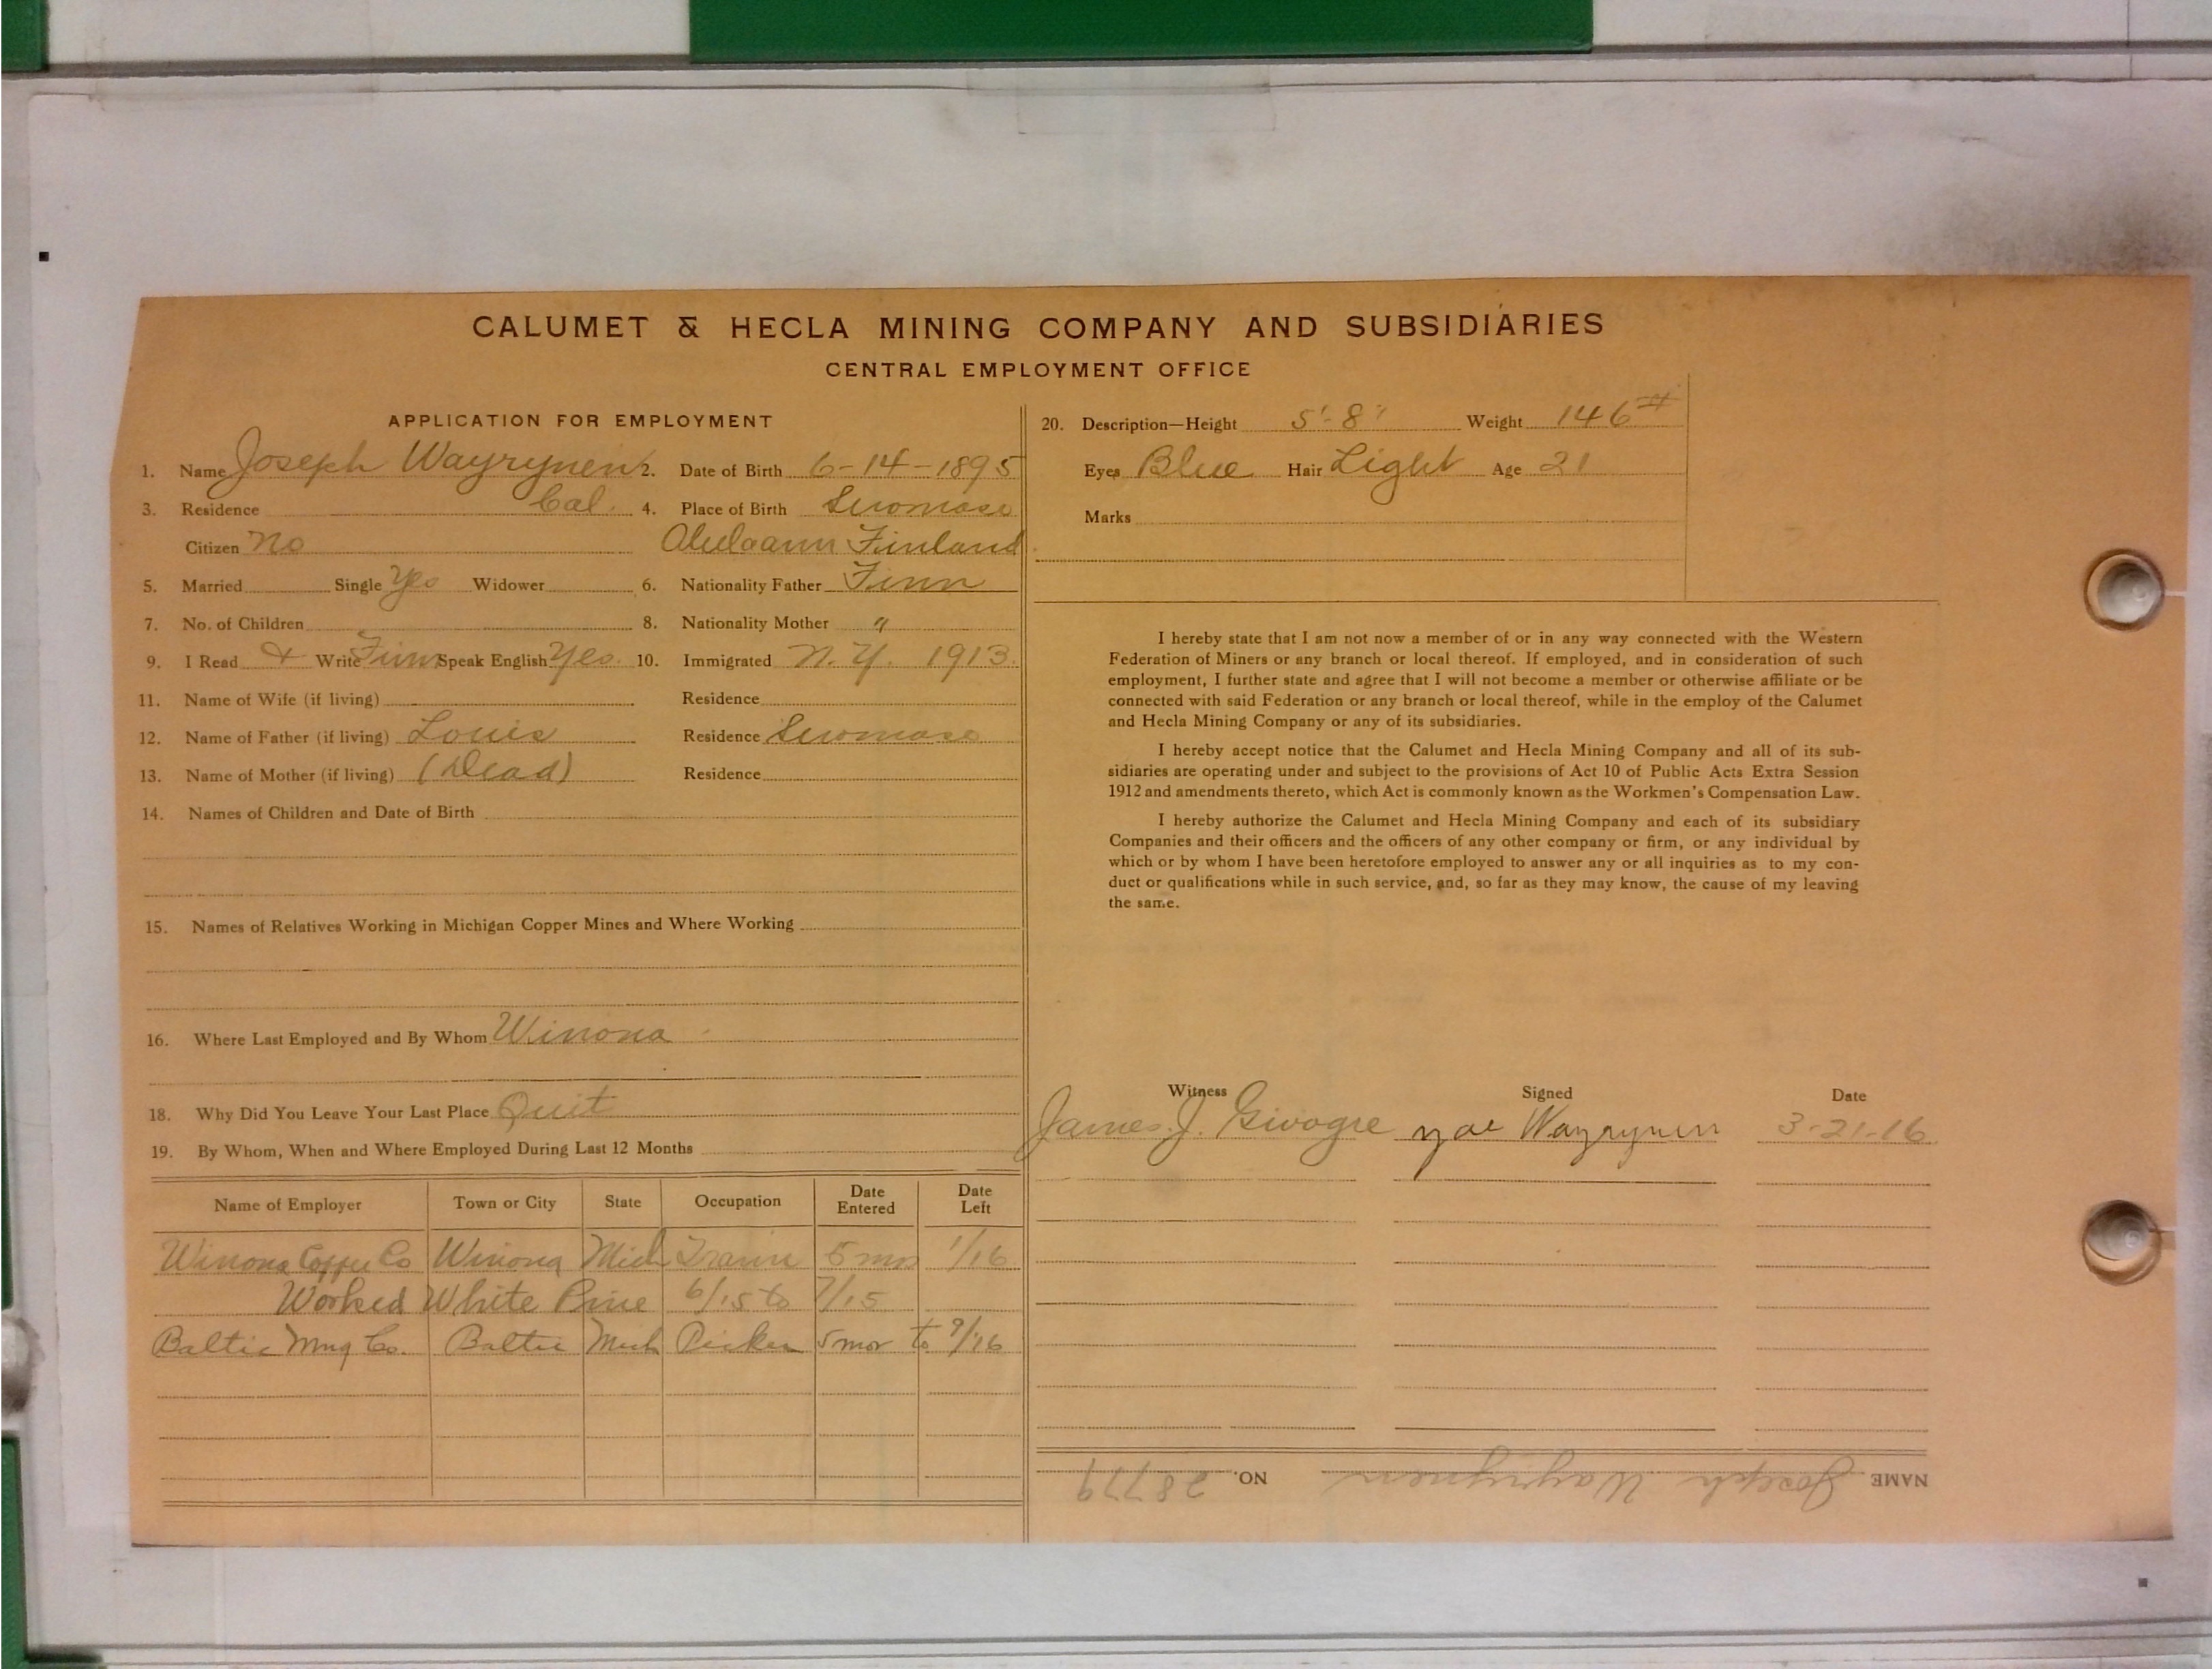 CALUMET & HECLA MINING COMPANY AND SUBSIDIARIES
CENTRAL EMPLOYMENT OFFICE
APPLICATION FOR EMPLOYMENT
1. Name Joseph Wayrynen 2. Date of Birth 6-14-1895
3. Residence Cal. 4. Place of Birth Suomaso
Citizen No Finland
5. Married Single Yes Widower 6. Nationality Father Finn
7. No. of Children 8. Nationality Mother "
9. I Read & Write Finn Speak English Yes. 10. Immigrated N.Y. 1913.
11. Name of Wife (if living) Residence
12. Name of Father (if living) Louis Residence Suomaso
13. Name of Mother (if living) (Dead) Residence
14. Names of Children and Date of Birth
15. Names of Relatives Working in Michigan Copper Mines and Where Working
16. Where Last Employed and By Whom Winona
18. Why Did You Leave Your Last Place Quit
19. By Whom, When and Where Employed During Last 12 Months
Name of Employer Town or City State Occupation Date Entered Date Left
Winona Copper Co Winona Mich 5 mos 1/16
Worked White Pine 6/15 to 7/15
Baltic Mng Co. Baltic Mich 5 mos to 9/16
20. Description—Height 5'-8" Weight 146#
Eyes Blue Hair Light Age 21
Marks
I hereby state that I am not now a member of or in any way connected with the Western
Federation of Miners or any branch or local thereof. If employed, and in consideration of such
employment, I further state and agree that I will not become a member or otherwise affiliate or be
connected with said Federation or any branch or local thereof, while in the employ of the Calumet
and Hecla Mining Company or any of its subsidiaries.
I hereby accept notice that the Calumet and Hecla Mining Company and all of its sub-
sidiaries are operating under and subject to the provisions of Act 10 of Public Acts Extra Session
1912 and amendments thereto, which Act is commonly known as the Workmen's Compensation Law.
I hereby authorize the Calumet and Hecla Mining Company and each of its subsidiary
Companies and their officers and the officers of any other company or firm, or any individual by
which or by whom I have been heretofore employed to answer any or all inquiries as to my con-
duct or qualifications while in such service, and, so far as they may know, the cause of my leaving
the same.
Witness Signed Date
James J. Wayrynen 3-21-16
NAME Joseph Wayrynen NO. 28779